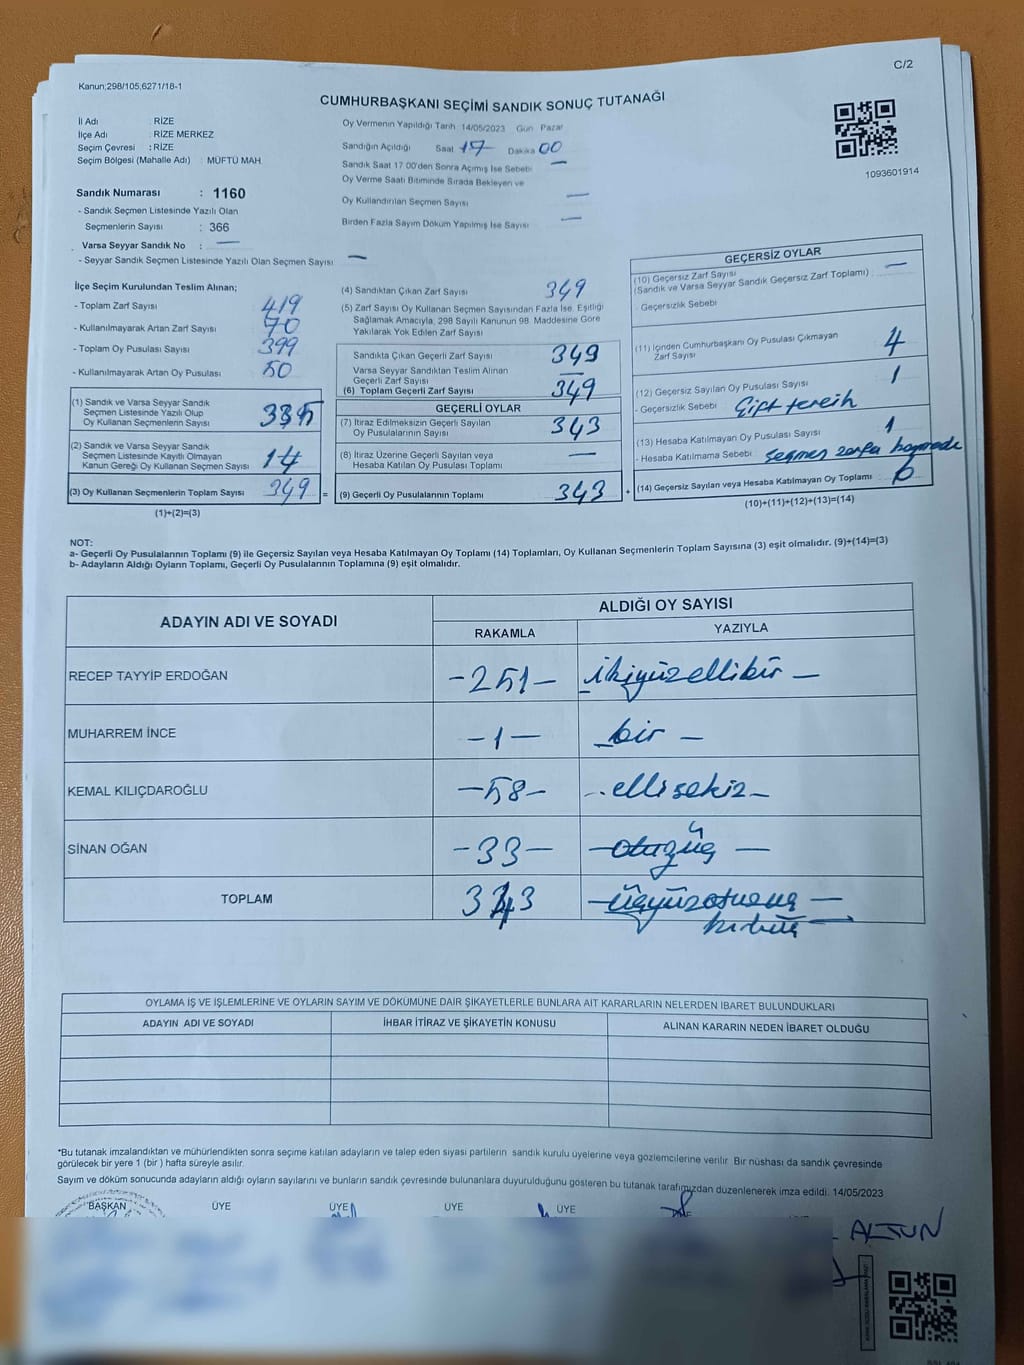 C/2
Kanun;298/105;6271/18-1
CUMHURBAŞKANI SEÇİMİ SANDIK SONUÇ TUTANAĞI
İl Adı : RİZE
İlçe Adı : RİZE MERKEZ
Seçim Çevresi : RİZE
Seçim Bölgesi (Mahalle Adı) : MÜFTÜ MAH.
Sandık Numarası : 1160
- Sandık Seçmen Listesinde Yazılı Olan
Seçmenlerin Sayısı : 366
Varsa Seyyar Sandık No : —
- Seyyar Sandık Seçmen Listesinde Yazılı Olan Seçmen Sayısı : —
Oy Vermenin Yapıldığı Tarih 14/05/2023 Gün Pazar
Sandığın Açıldığı Saat 17 Dakika 00
Sandık Saat 17.00'den Sonra Açımış İse Sebebi —
Oy Verme Saati Bitiminde Sırada Bekleyen ve
Oy Kullandırılan Seçmen Sayısı —
Birden Fazla Sayım Döküm Yapılmış İse Sayısı —
1093601914
İlçe Seçim Kurulundan Teslim Alınan;
- Toplam Zarf Sayısı 419
- Kullanılmayarak Artan Zarf Sayısı 70
- Toplam Oy Pusulası Sayısı 399
- Kullanılmayarak Artan Oy Pusulası 50
(1) Sandık ve Varsa Seyyar Sandık
Seçmen Listesinde Yazılı Olup
Oy Kullanan Seçmenlerin Sayısı 335
(2) Sandık ve Varsa Seyyar Sandık
Seçmen Listesinde Kayıtlı Olmayan
Kanun Gereği Oy Kullanan Seçmen Sayısı 14
(3) Oy Kullanan Seçmenlerin Toplam Sayısı 349 =
(1)+(2)=(3)
(4) Sandıktan Çıkan Zarf Sayısı 349
(5) Zarf Sayısı Oy Kullanan Seçmen Sayısından Fazla İse, Eşitliği
Sağlamak Amacıyla, 298 Sayılı Kanunun 98. Maddesine Göre
Yakılarak Yok Edilen Zarf Sayısı
Sandıkta Çıkan Geçerli Zarf Sayısı 349
Varsa Seyyar Sandıktan Teslim Alınan
Geçerli Zarf Sayısı —
(6) Toplam Geçerli Zarf Sayısı 349
GEÇERLİ OYLAR
(7) İtiraz Edilmeksizin Geçerli Sayılan
Oy Pusulalarının Sayısı 343
(8) İtiraz Üzerine Geçerli Sayılan veya
Hesaba Katılan Oy Pusulası Toplamı —
(9) Geçerli Oy Pusulalarının Toplamı 343 +
GEÇERSİZ OYLAR
(10) Geçersiz Zarf Sayısı
(Sandık ve Varsa Seyyar Sandık Geçersiz Zarf Toplamı) —
- Geçersizlik Sebebi
(11) İçinden Cumhurbaşkanı Oy Pusulası Çıkmayan
Zarf Sayısı 4
(12) Geçersiz Sayılan Oy Pusulası Sayısı 1
- Geçersizlik Sebebi Çift tercih
(13) Hesaba Katılmayan Oy Pusulası Sayısı 1
- Hesaba Katılmama Sebebi seçmen zarfa koymadı
(14) Geçersiz Sayılan veya Hesaba Katılmayan Oy Toplamı 6
(10)+(11)+(12)+(13)=(14)
NOT:
a- Geçerli Oy Pusulalarının Toplamı (9) ile Geçersiz Sayılan veya Hesaba Katılmayan Oy Toplamı (14) Toplamları, Oy Kullanan Seçmenlerin Toplam Sayısına (3) eşit olmalıdır. (9)+(14)=(3)
b- Adayların Aldığı Oyların Toplamı, Geçerli Oy Pusulalarının Toplamına (9) eşit olmalıdır.
ADAYIN ADI VE SOYADI ALDIĞI OY SAYISI
RAKAMLA YAZIYLA
RECEP TAYYİP ERDOĞAN -251- ikiyüzellibir -
MUHARREM İNCE -1- bir -
KEMAL KILIÇDAROĞLU -58- ellisekiz -
SİNAN OĞAN -33- otuzüç -
TOPLAM 343 üçyüz
kırküç
OYLAMA İŞ VE İŞLEMLERİNE VE OYLARIN SAYIM VE DÖKÜMÜNE DAİR ŞİKAYETLERLE BUNLARA AİT KARARLARIN NELERDEN İBARET BULUNDUKLARI
ADAYIN ADI VE SOYADI İHBAR İTİRAZ VE ŞİKAYETİN KONUSU ALINAN KARARIN NEDEN İBARET OLDUĞU
*Bu tutanak imzalandıktan ve mühürlendikten sonra seçime katılan adayların ve talep eden siyasi partilerin sandık kurulu üyelerine veya gözlemcilerine verilir. Bir nüshası da sandık çevresinde
görülecek bir yere 1 (bir ) hafta süreyle asılır.
Sayım ve döküm sonucunda adayların aldığı oyların sayılarını ve bunların sandık çevresinde bulunanlara duyurulduğunu gösteren bu tutanak tarafımızdan düzenlenerek imza edildi. 14/05/2023
BAŞKAN ÜYE ÜYE ÜYE ÜYE
ALTUN